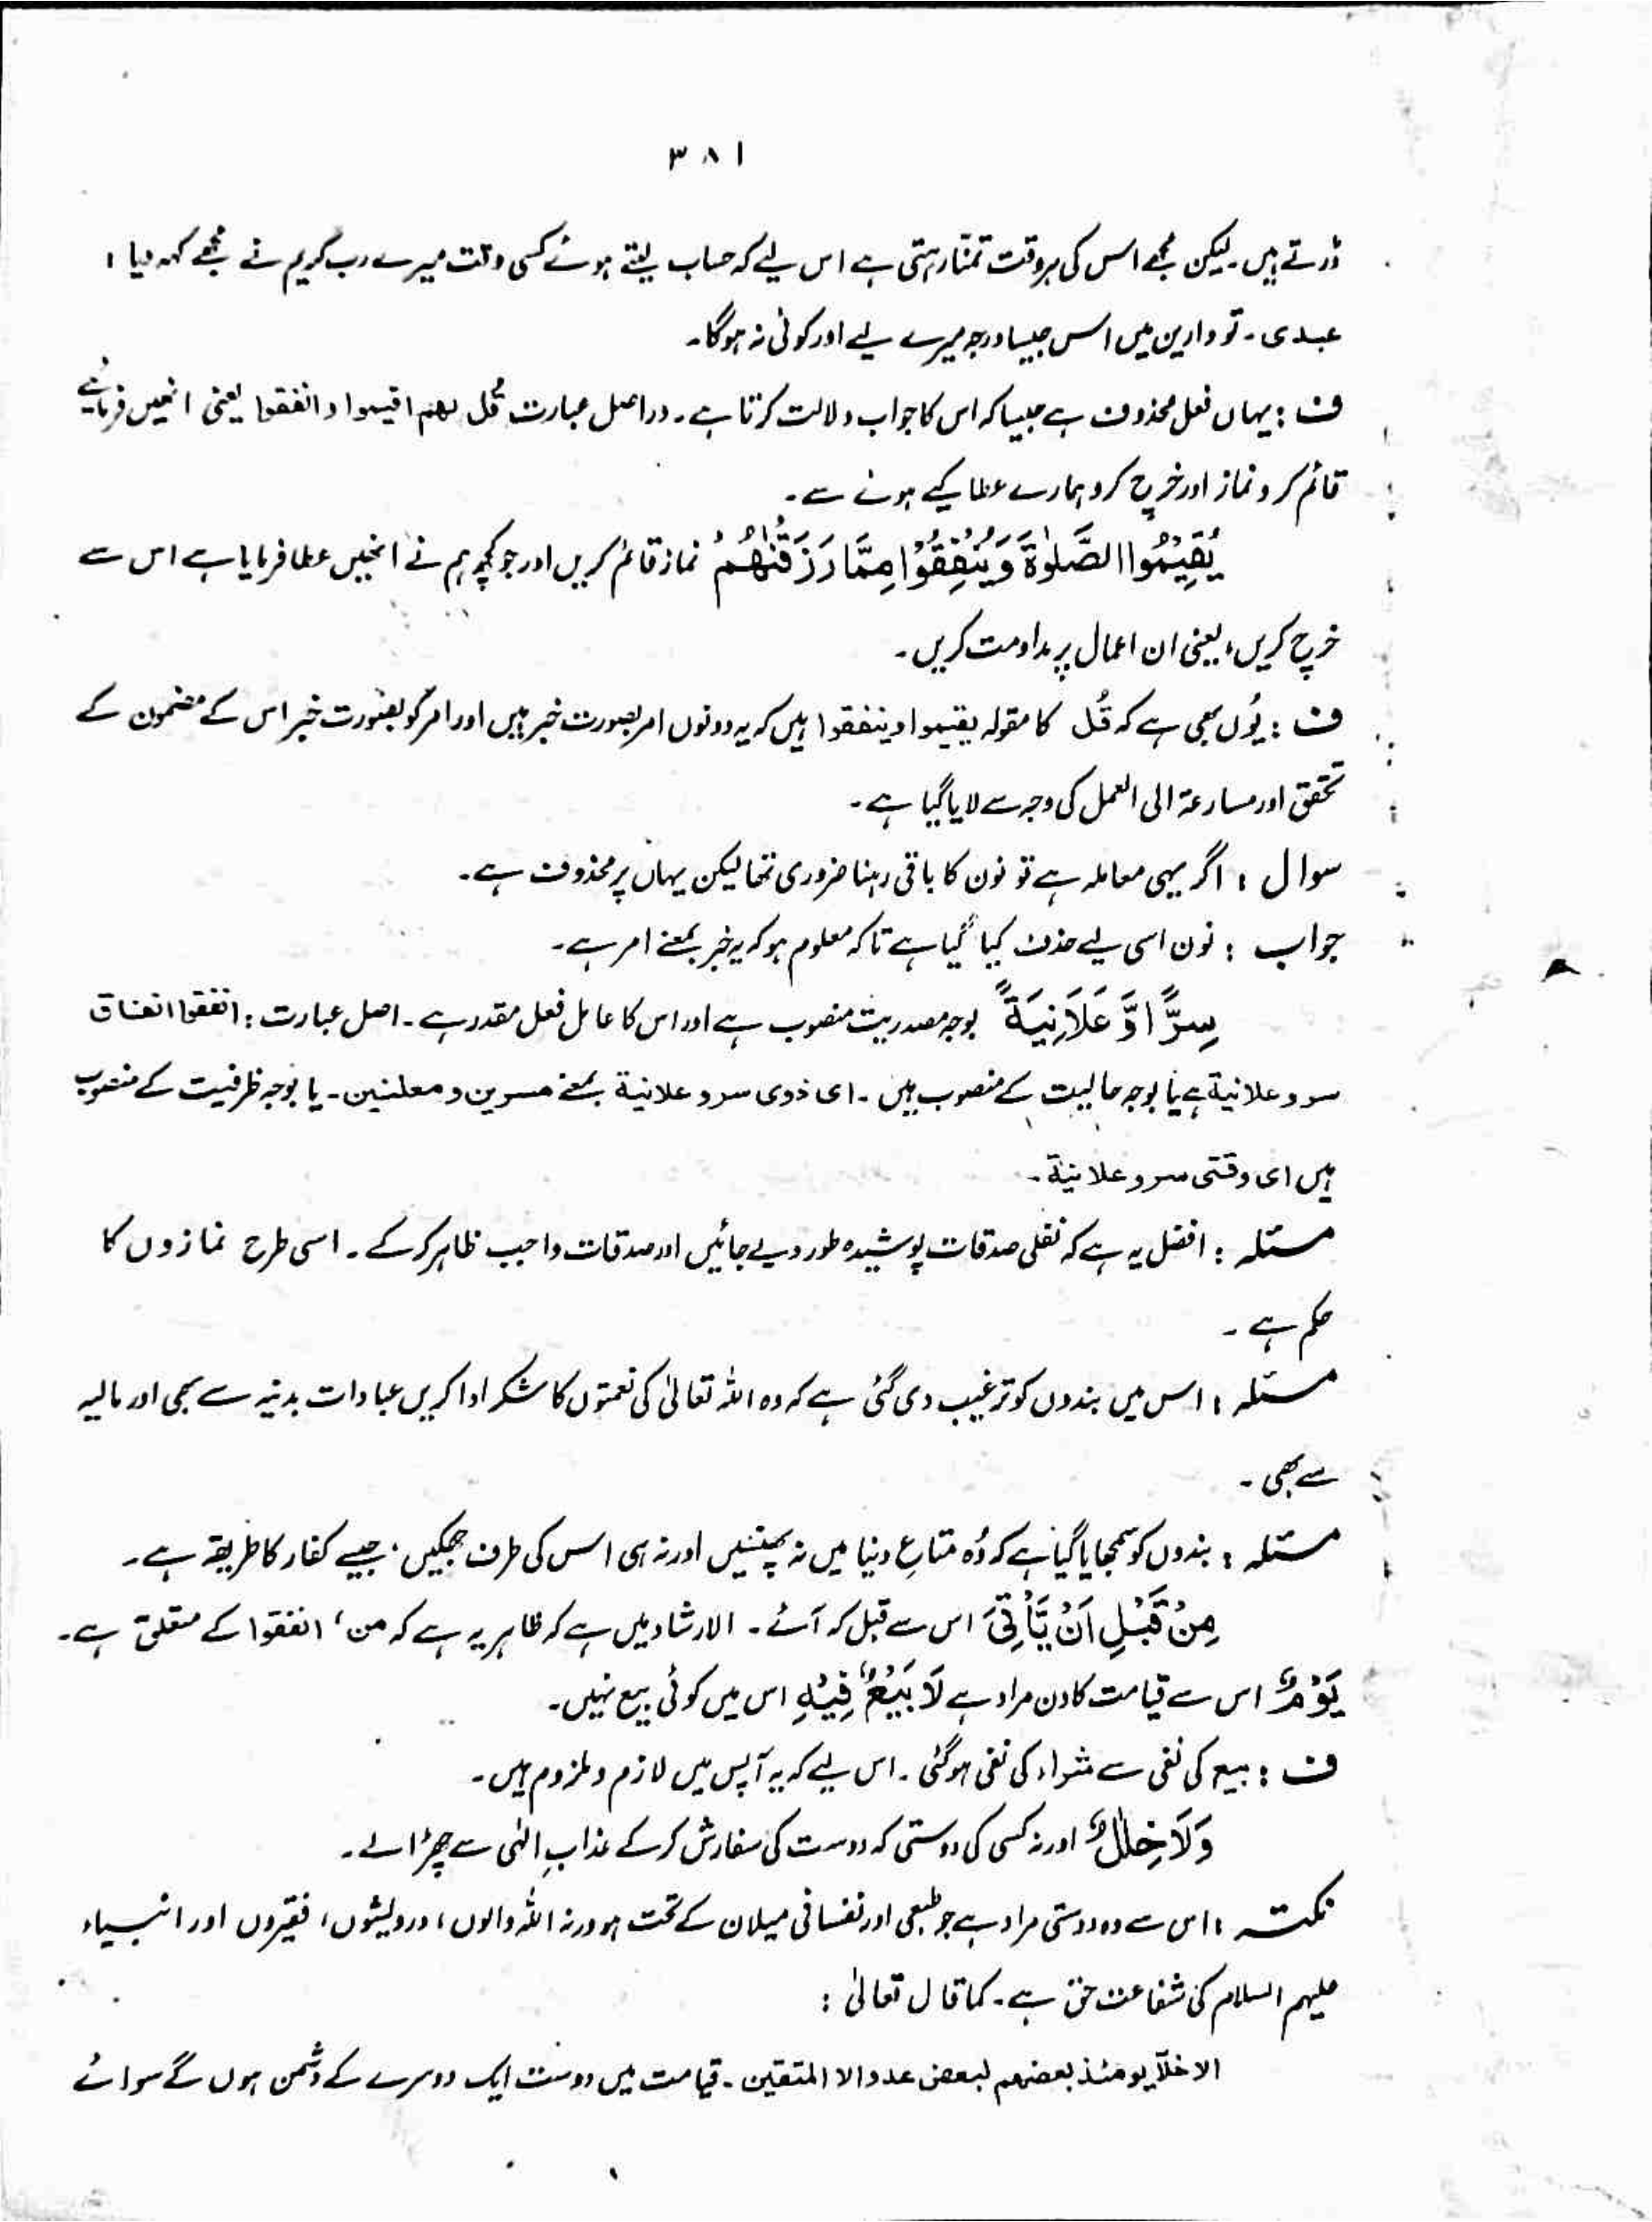 ۳۸۱
ڈرتے ہیں۔ لیکن مجھے اس کی ہر وقت تمنا رہتی ہے اس لیے کہ حساب لیتے ہوئے کسی وقت میرے رب کریم نے مجھے کہہ دیا :
عبدی۔ تو دارین میں اس جیسا درجہ میرے لیے اور کوئی نہ ہوگا۔
ف : یہاں فعل محذوف ہے جیسا کہ اس کا جواب دلالت کرتا ہے۔ دراصل عبارت قُل لهم اقيموا وانفقوا یعنی انھیں فرمائیے
قائم کرو نماز اور خرچ کرو ہمارے عطا کیے ہوئے سے۔
يُقِيْمُوا الصَّلٰوةَ وَيُنْفِقُوْا مِمَّا رَزَقْنٰهُمْ نماز قائم کریں اور جو کچھ ہم نے انھیں عطا فرمایا ہے اس سے
خرچ کریں، یعنی ان اعمال پر مداومت کریں۔
ف : یُوں بھی ہے کہ قُل کا مقولہ یقیموا و ینفقوا ہیں کہ یہ دونوں امر بصورت خبر ہیں اور امر کو بصورت خبر اس کے مضمون کے
تحقق اور مسارعۃ الی العمل کی وجہ سے لایا گیا ہے۔
سوال : اگر یہی معاملہ ہے تو نون کا باقی رہنا ضروری تھا لیکن یہاں پر محذوف ہے۔
جواب : نون اسی لیے حذف کیا گیا ہے تاکہ معلوم ہو کہ یہ خبر بمعنے امر ہے۔
سِرًّا وَّ عَلَانِيَةً بوجہ مصدریت منصوب ہے اور اس کا عامل فعل مقدر ہے۔ اصل عبارت : انفقوا انفاق
سر و علانیة ہے یا بوجہ حالیت کے منصوب ہیں۔ ای ذوی سر و علانیة بمعنے مسرین و معلنین۔ یا بوجہ ظرفیت کے منصوب
ہیں ای وقتی سر و علانیة۔
مسئلہ : افضل یہ ہے کہ نفلی صدقات پوشیدہ طور دیے جائیں اور صدقات واجب ظاہر کرکے۔ اسی طرح نمازوں کا
حکم ہے۔
مسئلہ : اس میں بندوں کو ترغیب دی گئی ہے کہ وہ اللہ تعالیٰ کی نعمتوں کا شکر ادا کریں عبادات بدنیہ سے بھی اور مالیہ
سے بھی۔
مسئلہ : بندوں کو سمجھایا گیا ہے کہ وُہ متاعِ دنیا میں نہ پھنسیں اور نہ ہی اس کی طرف جھکیں۔ جیسے کفار کا طریقہ ہے۔
مِنْ قَبْلِ اَنْ يَّاْتِيَ اس سے قبل کہ آئے۔ الارشاد میں ہے کہ ظاہر یہ ہے کہ من، انفقوا کے متعلق ہے۔
يَوْمٌ اس سے قیامت کا دن مراد ہے لَا بَيْعٌ فِيْهِ اس میں کوئی بیع نہیں۔
ف : بیع کی نفی سے شراء کی نفی ہوگئی۔ اس لیے کہ یہ آپس میں لازم و ملزوم ہیں۔
وَلَا خِلٰلٌ اور نہ کسی کی دوستی کہ دوست کی سفارش کرکے عذابِ الٰہی سے چھڑا لے۔
نکتہ : اس سے وہ دوستی مراد ہے جو طبعی اور نفسانی میلان کے تحت ہو ورنہ اللہ والوں، درویشوں، فقیروں اور انبیاء
علیہم السلام کی شفاعت حق ہے۔ کما قال تعالیٰ :
الاخلّآء یومئذ بعضهم لبعض عدو الا المتقین۔ قیامت میں دوست ایک دوسرے کے دشمن ہوں گے سوائے